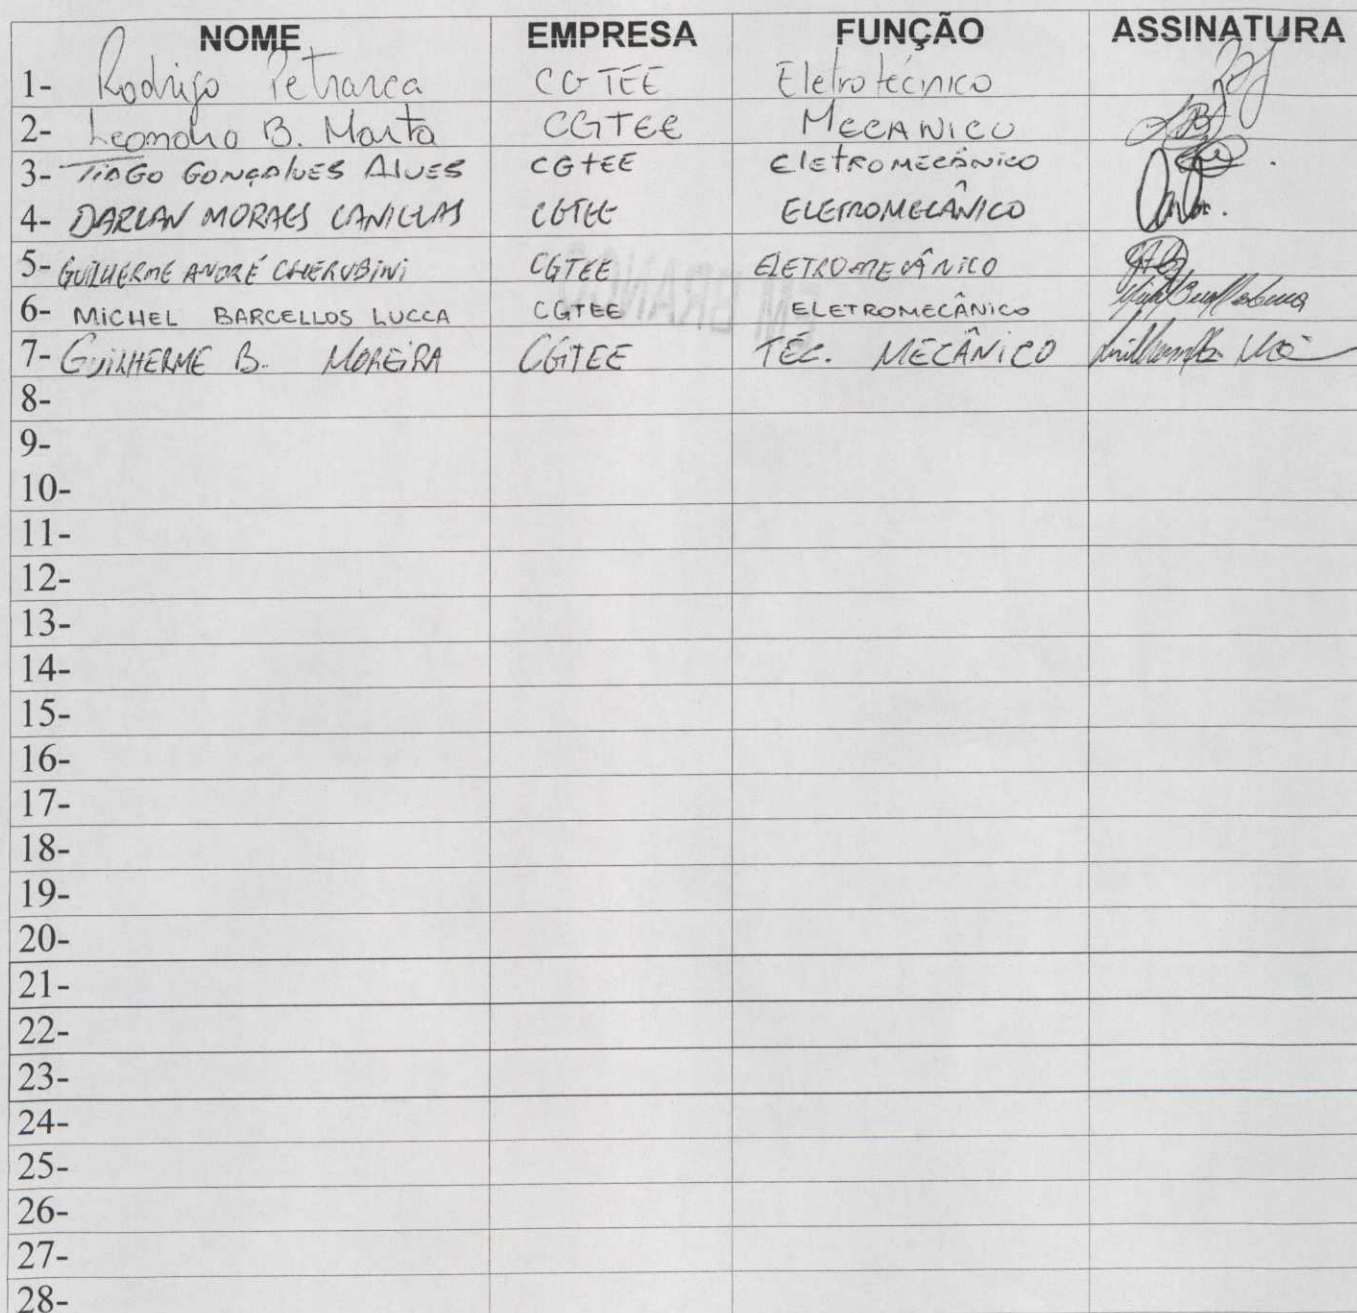 NOME EMPRESA FUNÇÃO ASSINATURA
1- Rodrigo Petrarca CGTEE Eletrotécnico
2- Leandro B. Marta CGTEE MECANICO
3- TIAGO GONÇALVES ALVES CGTEE ELETROMECÂNICO
4- DARLAN MORAES CANIELAS CGTEE ELETROMECÂNICO
5- GUILHERME ANDRÉ CHERUBINI CGTEE ELETROMECÂNICO
6- MICHEL BARCELLOS LUCCA CGTEE ELETROMECÂNICO
7- GUILHERME B. MOREIRA CGTEE TÉC. MECÂNICO
8-
9-
10-
11-
12-
13-
14-
15-
16-
17-
18-
19-
20-
21-
22-
23-
24-
25-
26-
27-
28-